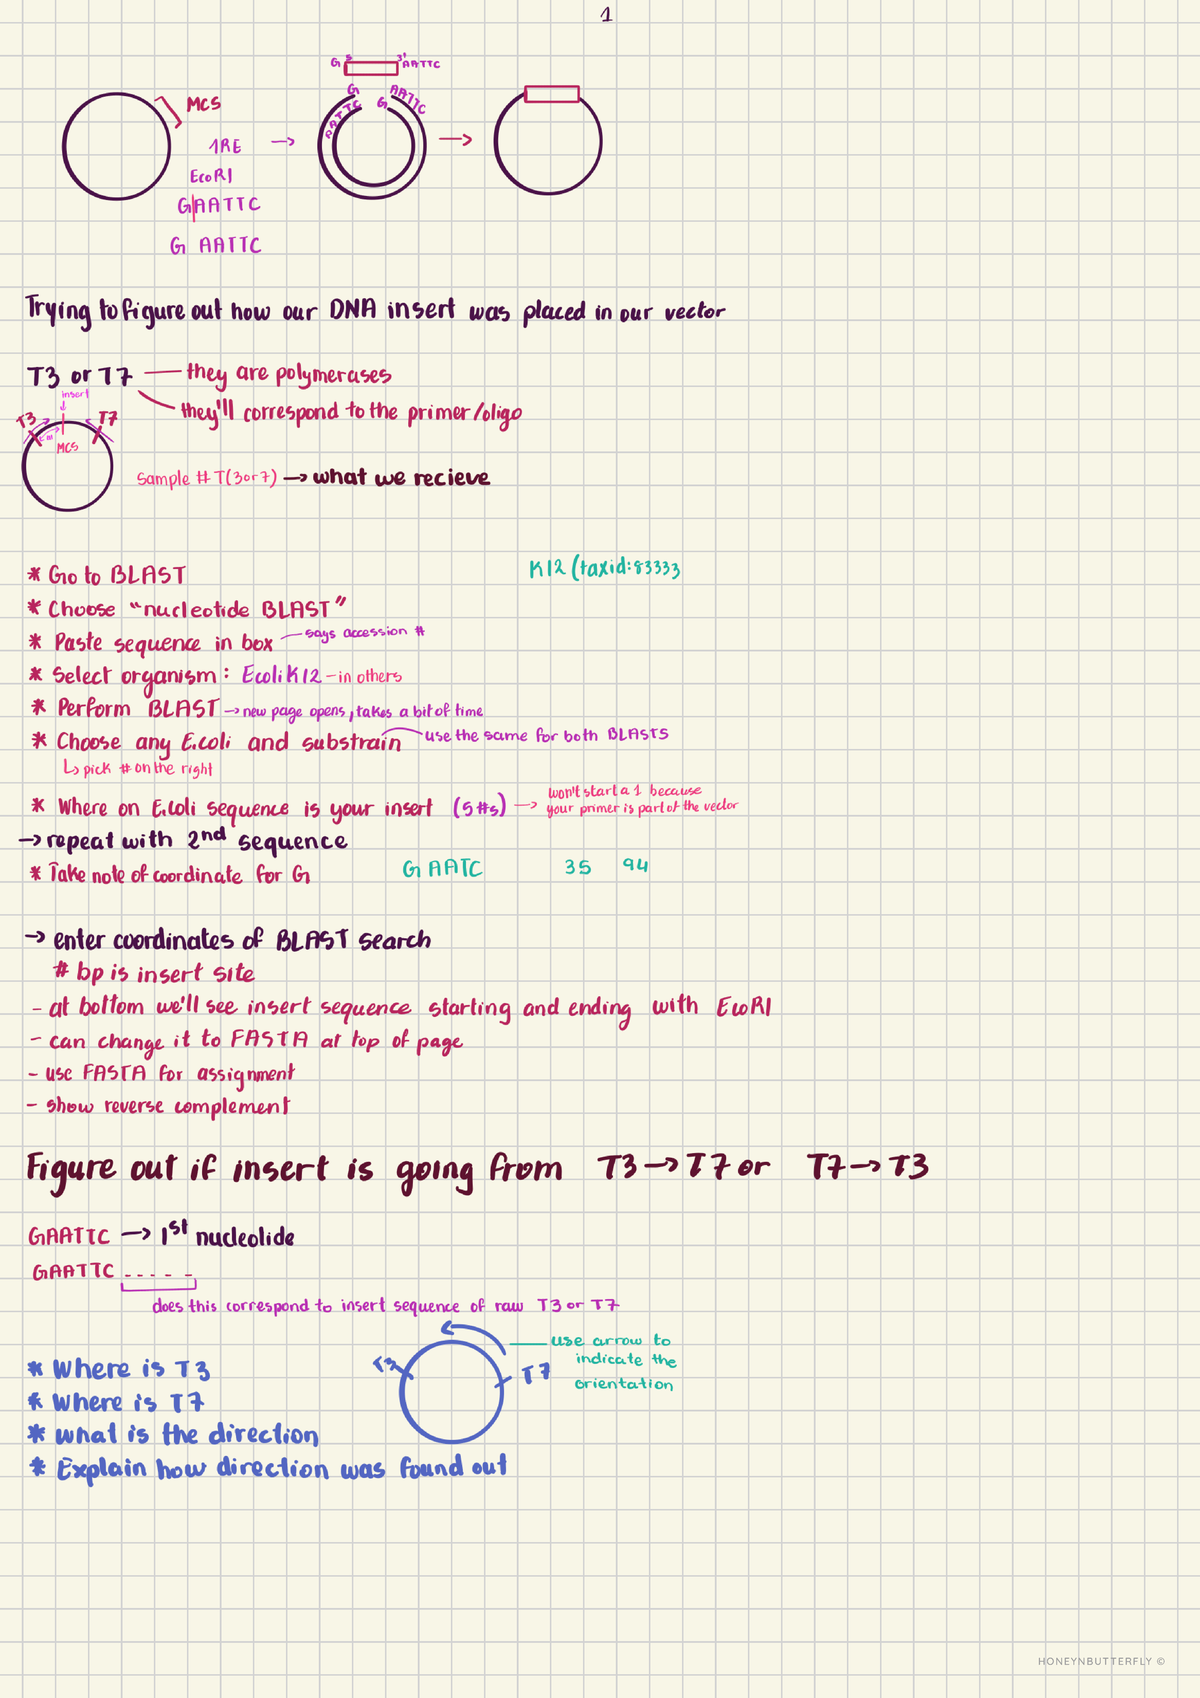 1
G 5' 3' AATTC
MCS
G AATTC
AATTC G
1RE
EcoRI
G|AATTC
G AATTC
Trying to figure out how our DNA insert was placed in our vector
T3 or T7 — they are polymerases
they'll correspond to the primer/oligo
insert
T3 T7
MCS
Sample # T(3 or 7) → what we recieve
* Go to BLAST
K12 (taxid:83333
* Choose "nucleotide BLAST"
* Paste sequence in box — says accession #
* Select organism: Ecoli K12 - in others
* Perform BLAST → new page opens, takes a bit of time
* Choose any E.coli and substrain use the same for both BLASTS
↳ pick # on the right
* Where on E.coli sequence is your insert (5 #s) → won't start a 1 because
your primer is part of the vector
→ repeat with 2nd sequence
* Take note of coordinate for G
G AATC 35 94
→ enter coordinates of BLAST search
# bp is insert site
- at bottom we'll see insert sequence starting and ending with EcoRI
- can change it to FASTA at top of page
- use FASTA for assignment
- show reverse complement
Figure out if insert is going from T3 → T7 or T7 → T3
GAATTC → 1st nucleolide
GAATTC - - - - -
does this correspond to insert sequence of raw T3 or T7
T3 T7
use arrow to
indicate the
orientation
* Where is T3
* Where is T7
* what is the direction
* Explain how direction was found out
HONEYNBUTTERFLY ©